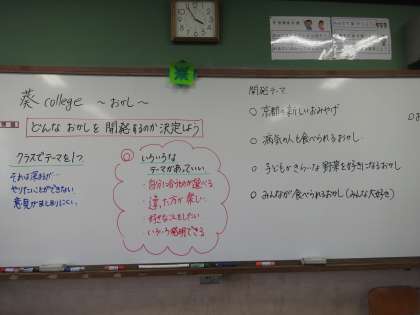 葵 college ～おかし～
どんな おかしを 開発するのか 決定しよう
クラスでテーマを1つ
それは深まるが…
やりたいことができない
意見がまとまりにくい
◎ いろいろな
テーマがあっていい
・自分に合うものが選べる
・違った方が楽しい
・好きなことをしたい
・いろいろ発明できる
開発テーマ
○ 京都の新しいおみやげ
○ 病気の人も食べられるおかし
○ 子どもがきらいな野菜を好きになるおかし
○ みんなが食べられるおかし（みんな大好き）